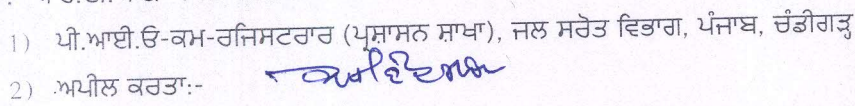 1) ਪੀ.ਆਈ.ਓ-ਕਮ-ਰਜਿਸਟਰਾਰ (ਪ੍ਰਸ਼ਾਸਨ ਸ਼ਾਖਾ), ਜਲ ਸਰੋਤ ਵਿਭਾਗ, ਪੰਜਾਬ, ਚੰਡੀਗੜ੍ਹ
2) ਅਪੀਲ ਕਰਤਾ:-